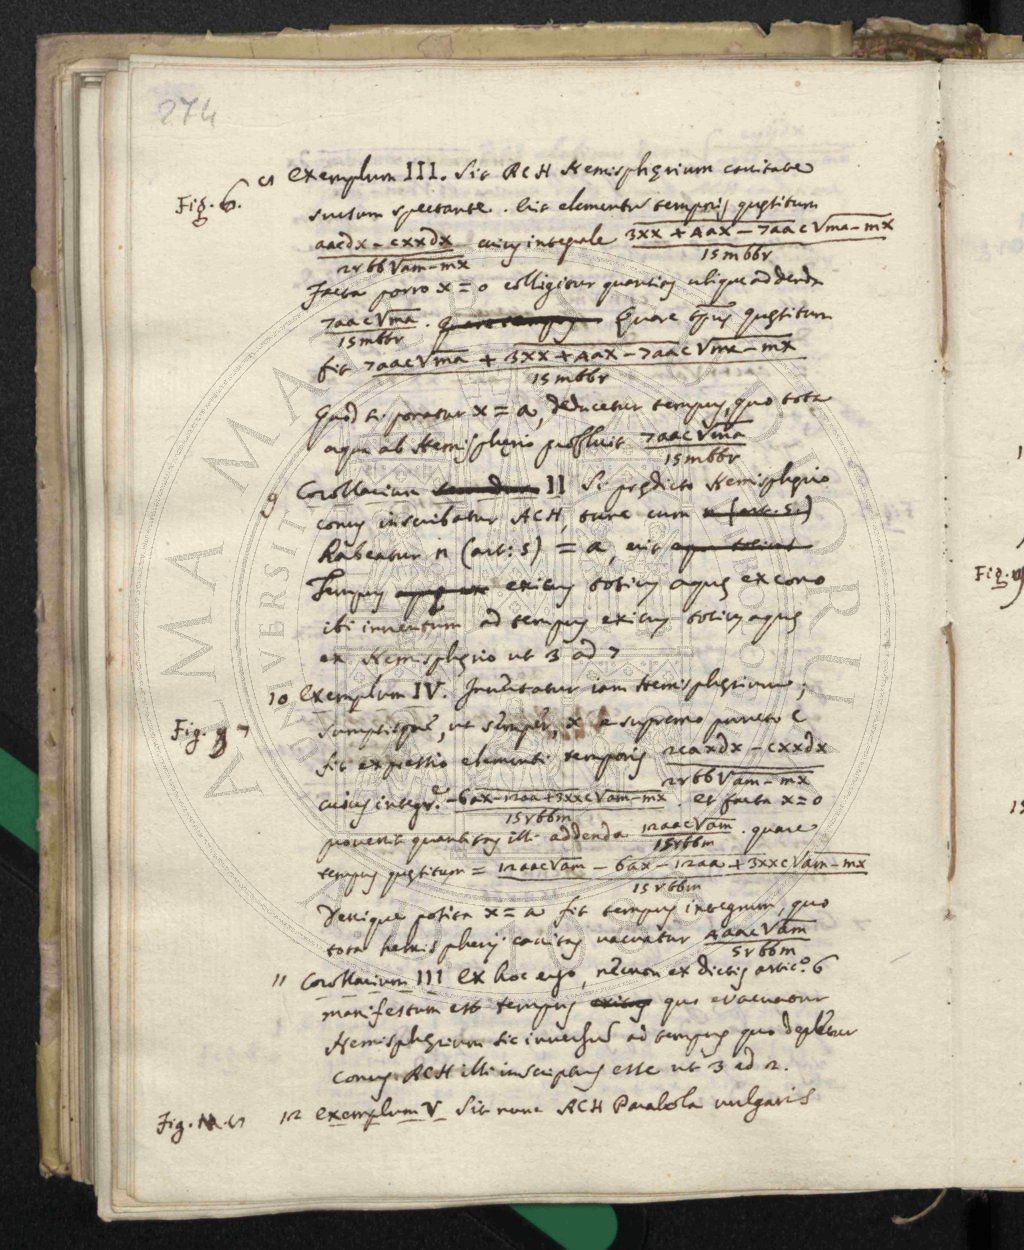 274
Fig. 6. 8 Exemplum III. Sit ACH Hemisphęrium cavitate
sursum spectante. Erit elementũ temporis quęsitum
aacdx - cxxdx / 2rbb√am-mx cuius integrale 3xx + 4ax - 7aa c√ma-mx / 15mbbr
Facta porro x = 0 colligitur quantitas utique addenda
7aac√ma / 15mbbr . Quare tempus Quare tp̃us quęsitum
fit 7aac√ma + 3xx + 4ax - 7aa c√ma - mx / 15mbbr
Quod si ponatur x = a, deducetur tempus, quo tota
aqua ab Hemisphęrio profluit 7aac√ma / 15mbbr
9 Corollarium secundum II Si prędicto Hemisphęrio
conus inscribatur ACH, tunc cum n (art. 5.)
habeatur n (art: 5) = a, erit
Tempus exitus totius aquę ex cono
ibi inventum ad tempus exitus totius aquę
ex Hemisphęrio ut 3 ad 7
10 Exemplum IV. Invertatur iam Hemisphęrium;
Fig. 7 sumptisque, ut semper, x a supremo puncto C
fit expressio elementi temporis 2caxdx - cxxdx / 2rbb√am - mx
cuius integr.e - 6ax - 12aa + 3xx c√am-mx / 15rbbm . et facta x=0
provenit quantitas illi addenda 12aac√am / 15rbbm . quare
tempus quęsitum = 12aac√am - 6ax - 12aa + 3xx c√am - mx / 15rbbm
Denique posita x = a fit tempus integrum, quo
tota hemispherij cavitas vacuatur 4aac√am / 5rbbm
11 Corollarium III Ex hoc ergo, necnon ex dictis artic.o 6
manifestum est tempus exitus quo evacuatur
Hemisphęrium sic inversũ ad tempus quo depletur
conus ACH illi inscriptus esse ut 3 ad 2.
Fig. 8 12 Exemplum V Sit nunc ACH Parabola vulgaris
Fig.